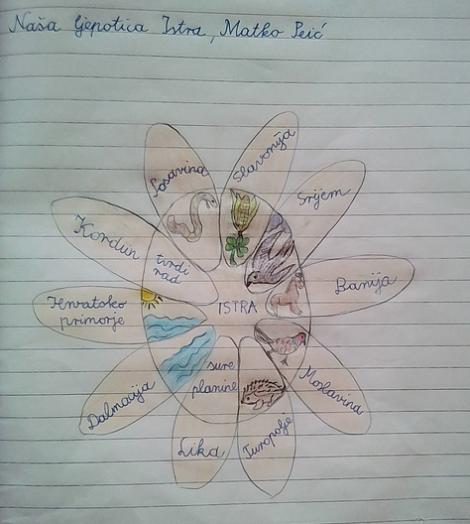 Naša ljepotica Istra, Matko Peić
Posavina
Slavonija
Srijem
Kordun
tvrdi
rad
Banija
Hrvatsko
primorje
ISTRA
Moslavina
Dalmacija
sure
planine
Lika
Turopolje